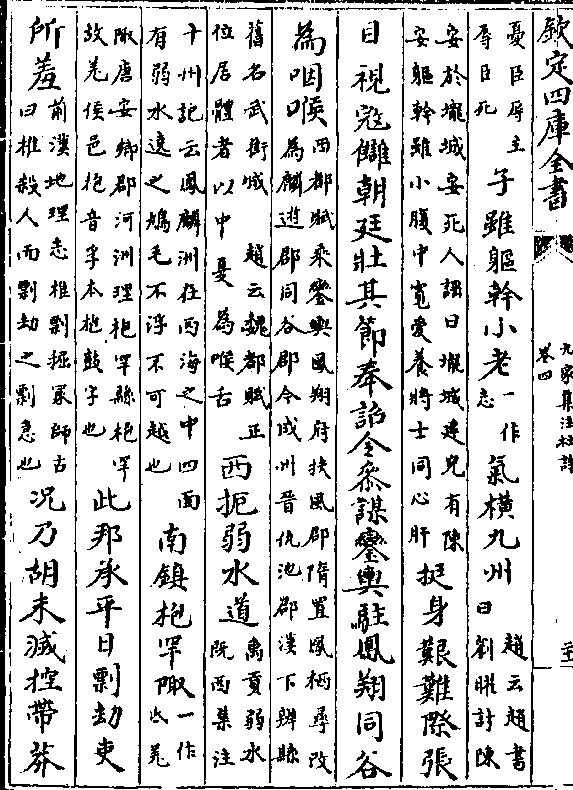 欽定四庫全書
九家集注杜詩
卷四
憂臣辱主
辱臣死
子雖軀幹小老
一作
志
氣橫九州
趙云趙書
曰劉曜討陳
安於壠城安死人謡曰壠城建兒有陳
安軀幹雖小腹中寛愛養將士同心肝
挺身艱難際張
目視寇讎朝廷壯其節奉詔令參謀鑾輿駐鳳翔同谷
為咽喉
西都賦乘鑾輿鳳翔府扶風郡隋置鳳栖尋改
為麟遊郡同谷郡今成州晉仇池郡漢下辨縣
舊名武街城 趙云魏都賦正
位居體者以中夏為喉舌
西扼弱水道
禹貢弱水
既西集注
十州記云鳳麟洲在西海之中四面
有弱水遶之鴻毛不浮不可越也
南鎮枹罕陬
一作
氐羌
陬唐安鄉郡河洲理枹罕縣枹罕
故羌侯邑枹音孚本枹鼓字也
此邦承平日剽劫吏
所羞
前漢地理志椎剽掘冢師古
曰椎殺人而剽劫之剽急也
況乃胡未滅控帶莽